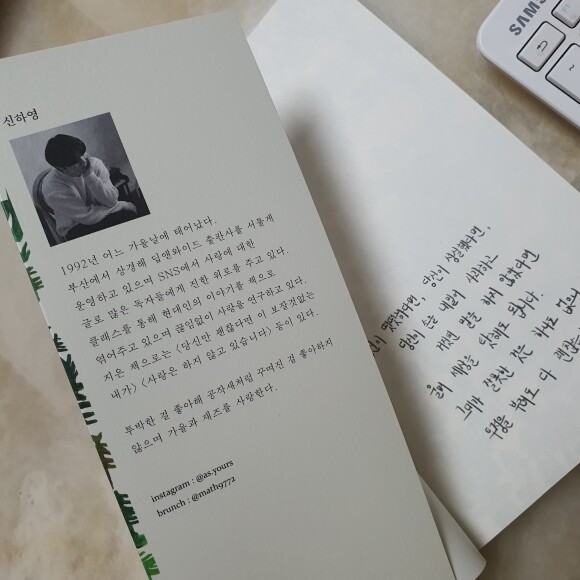 신하영
1992년 어느 가을날에 태어났다.
부산에서 상경해 딥앤와이드 출판사를 서툴게
운영하고 있으며 SNS에서 사랑에 대한
글로 많은 독자들에게 진한 위로를 주고 있다.
클래스를 통해 현대인의 이야기를 책으로
엮어주고 있으며 끊임없이 사랑을 연구하고 있다.
지은 책으로는 〈당신만 괜찮다면 이 보잘것없는
내가〉 〈사랑은 하지 않고 있습니다〉 등이 있다.
투박한 걸 좋아해 공작새처럼 꾸며진 걸 좋아하지
않으며 가을과 재즈를 사랑한다.
instagram : @as.yours
brunch : @math9772
SAMS
당신이 상실했다면,
당신이 손을 내밀어
하지 않았다면
울며 세상을 탓해도 됩니다.
그대가 잘못한 것은 하나도 없으며
다